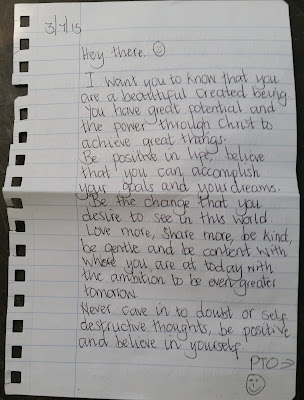 3/7/15
Hey there. ☺
I want you to know that you
are a beautiful created being
You have great potential and
the power through Christ to
achieve great things.
Be positive in life, believe
that you can accomplish
your goals and your dreams.
Be the change that you
desire to see in this world.
Love more, share more, be kind,
be gentle and be content with
where you are at today with
the ambition to be even greater
tomorrow.
Never cave in to doubt or self
destructive thoughts, be positive
and believe in yourself.
PTO→
☺